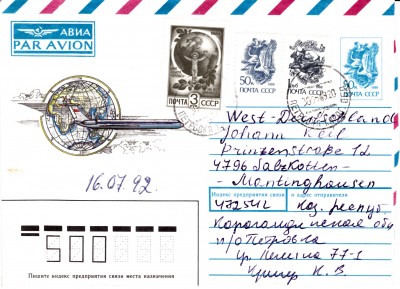 АВИА
PAR AVION
ПОЧТА 3 СССР
50к
ПОЧТА СССР
ПОЧТА СССР
ПОЧТА СССР
West-Deutschland
Johann Keil
Prinzenstraße 12
4796 Salzkotten-
- Mantinghausen
16.07.92.
Индекс предприятия связи и адрес отправителя
472542 Каз. респуб.
Карагандинская обл
п/о Петровка
ул. Ленина 77-1
К. В.
500
Пишите индекс предприятия связи места назначения